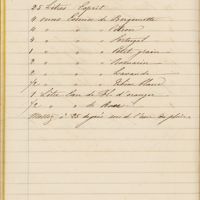 25 Litres Esprit
4 onces Essence de Bergamotte
4 " " " Citron
3 " " " Portugal
1 " " " Petit grain
2 " " " Romarin
2 " " " Lavande
1/2 " " "
1 Litre Eau de Fl. d'oranger
1/2 " " de Rose
Mettez à 25 degrés avec de l'eau de pluie.